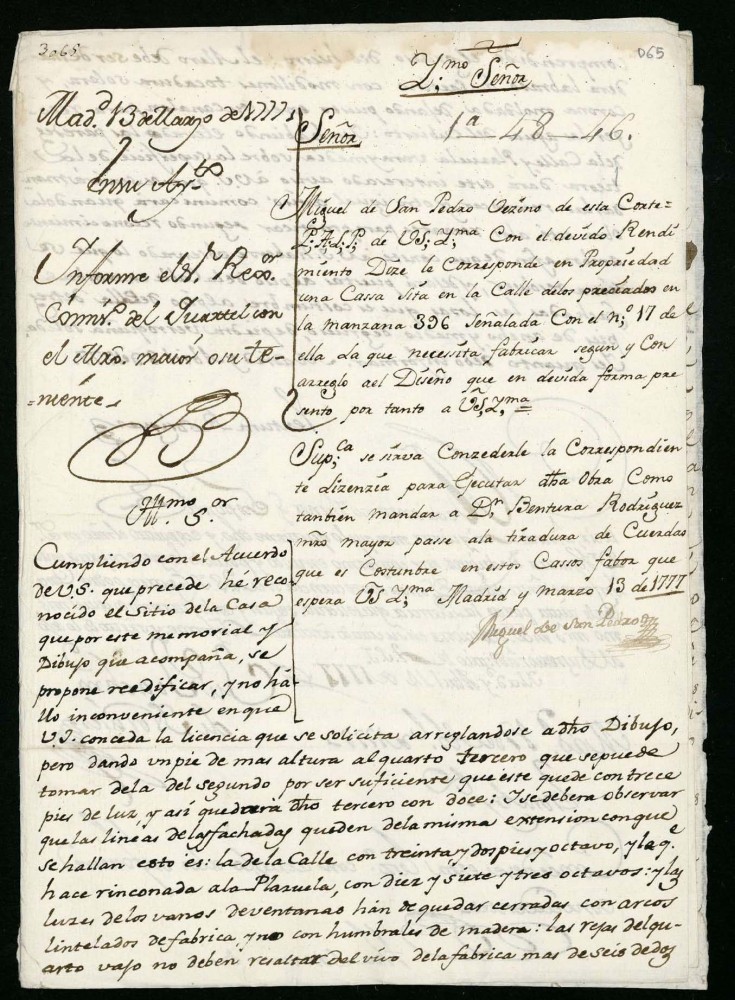 3065
065
Y;mo Señor
Señor
1a - 48 - 46.
Miguel de San Pedro Vezino de esta Corte-
P. A. L. P. de VS; Y;ma Con el devido Rendi
miento Dize le Corresponde en Propriedad
una Cassa sita en la Calle delos preciados en
la manzana 396 señalada Con el n;o 17 de
ella La que necessita fabricar segun y Con
arreglo ael Diseño que en devida forma pre
sento por tanto a VS; Y;ma
Sup;ca se sirva Conzederle la Correspondien
te lizenzia para Ejecutar dha Obra Como
tanbien mandar a Dn Bentura Rodriguez
mro mayor passe ala tiradura de Cuerdas
que es Costunbre en estos Cassos fabor que
espera VS Y;ma Madrid y marzo 13 de 1777
Miguel de San Pedro
Mad.d 13 de Marzo de 1777
En su Ay.to
Informe el Sr Rexor.
Comis.o del Quartel con
el Mro. maior o su te-
-niente-
Ill.mo S.or
Cumpliendo con el Acuerdo
de V.S. que precede hé reco-
nocido el Sitio de la Casa
que por este memorial y
Dibujo que acompaña, se
propone reedificar, y no há-
llo inconveniente en que
V.I. conceda la licencia que se solicita arreglandose a dho Dibujo,
pero dando vn pie de mas altura al quarto tercero que se puede
tomar de la del segundo por ser suficiente que este quede con trece
pies de luz, y así quedara dho tercero con doce: Y se debera observar
que las lineas de las fachadas queden de la misma extension con que
se hallan esto es: la de la Calle con treinta y dos pies y octavo, y la q.e
hace rinconada a la Plazuela, con diez y siete y tres octavos: y las
luzes de los vanos de ventanas hán de quedar cerradas con arcos
lintelados de fabrica, y no con humbrales de madera: las rejas del qu-
arto vajo no deben resaltar del vivo de la fabrica mas de seis dedos